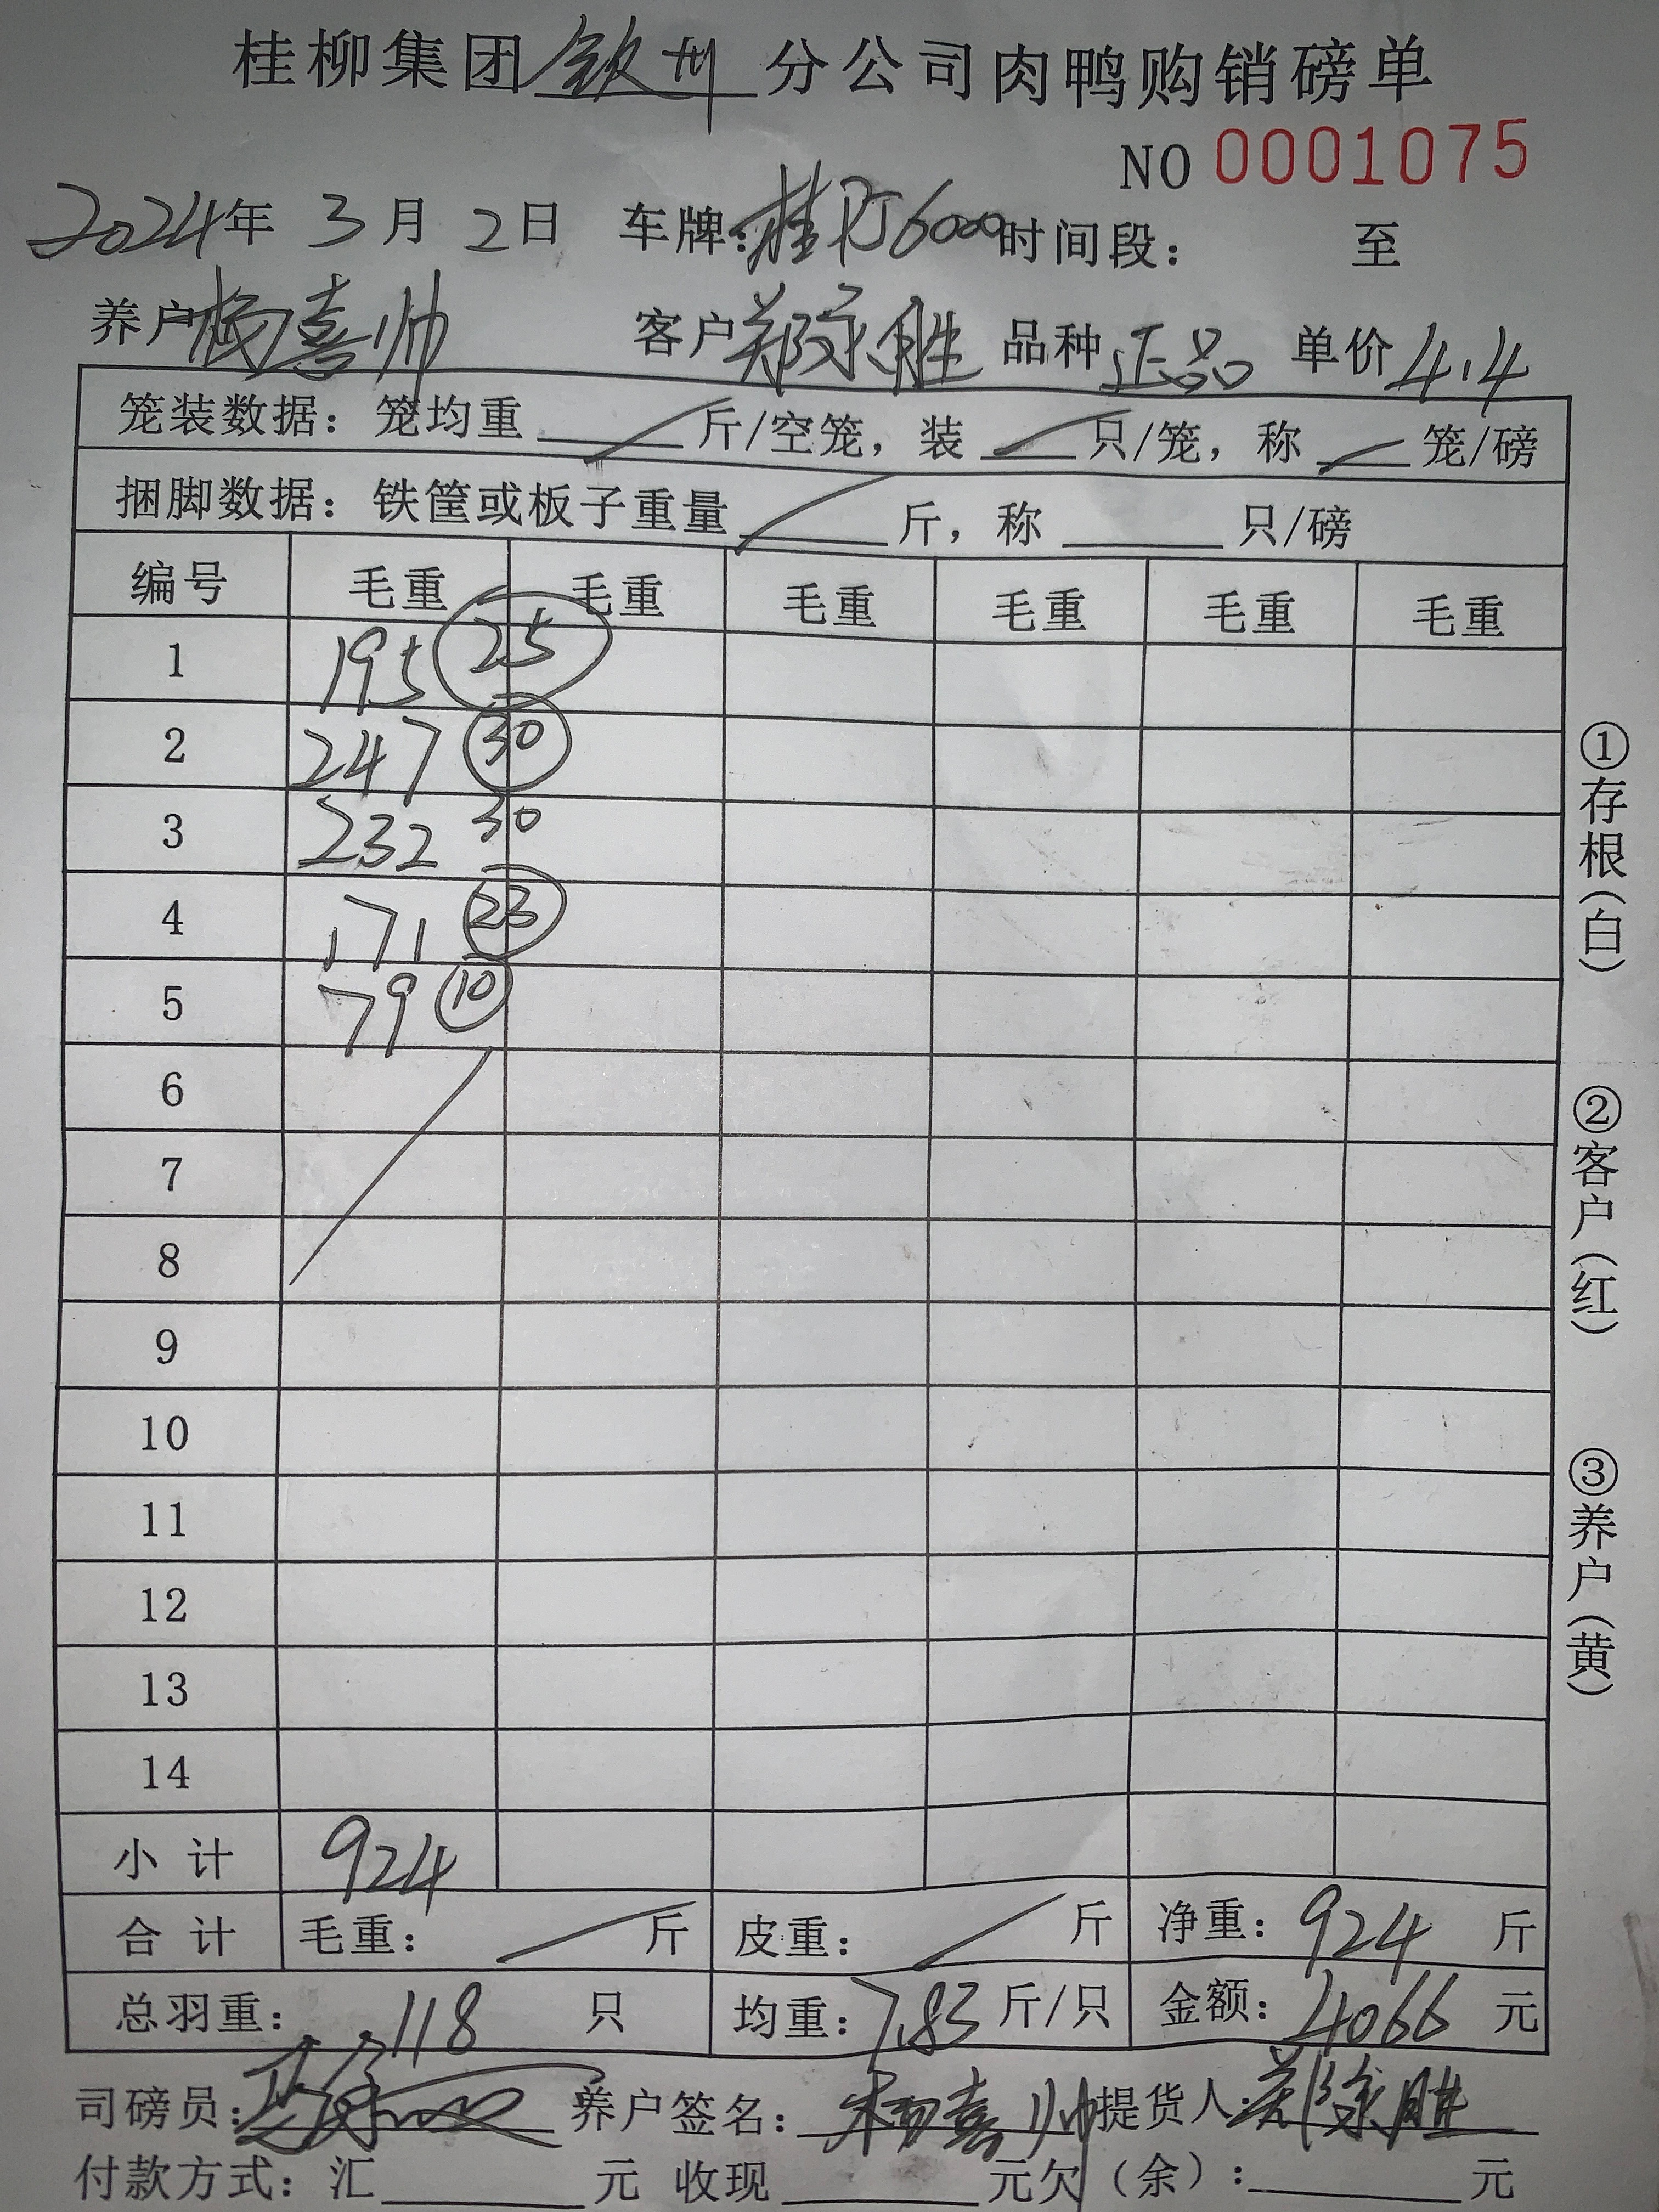 桂柳集团钦州分公司肉鸭购销磅单
NO 0001075
2024年 3月 2日 车牌:桂 6000 时间段: 至
养户杨喜帅 客户郑永胜 品种正品 单价4.4
笼装数据:笼均重 / 斤/空笼,装 / 只/笼,称 / 笼/磅
捆脚数据:铁筐或板子重量 / 斤,称 只/磅
编号 毛重 毛重 毛重 毛重 毛重 毛重
1 195 25
2 247 30
3 232 30
4 171 23
5 79 10
6
7
8
9
10
11
12
13
14
小计 924
合计 毛重: / 斤 皮重: / 斤 净重:924 斤
总羽重:118 只 均重:7.83 斤/只 金额:4066 元
司磅员: 养户签名:杨喜帅 提货人:郑永胜
付款方式:汇 元 收现 元欠(余): 元
①存根(白)
②客户(红)
③养户(黄)